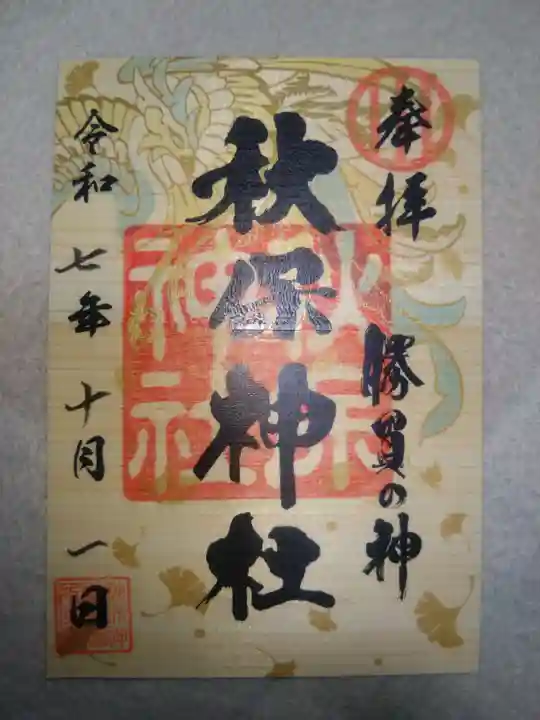 奉拝 勝負の神
秋保神社
令和七年十月一日
秋保神社